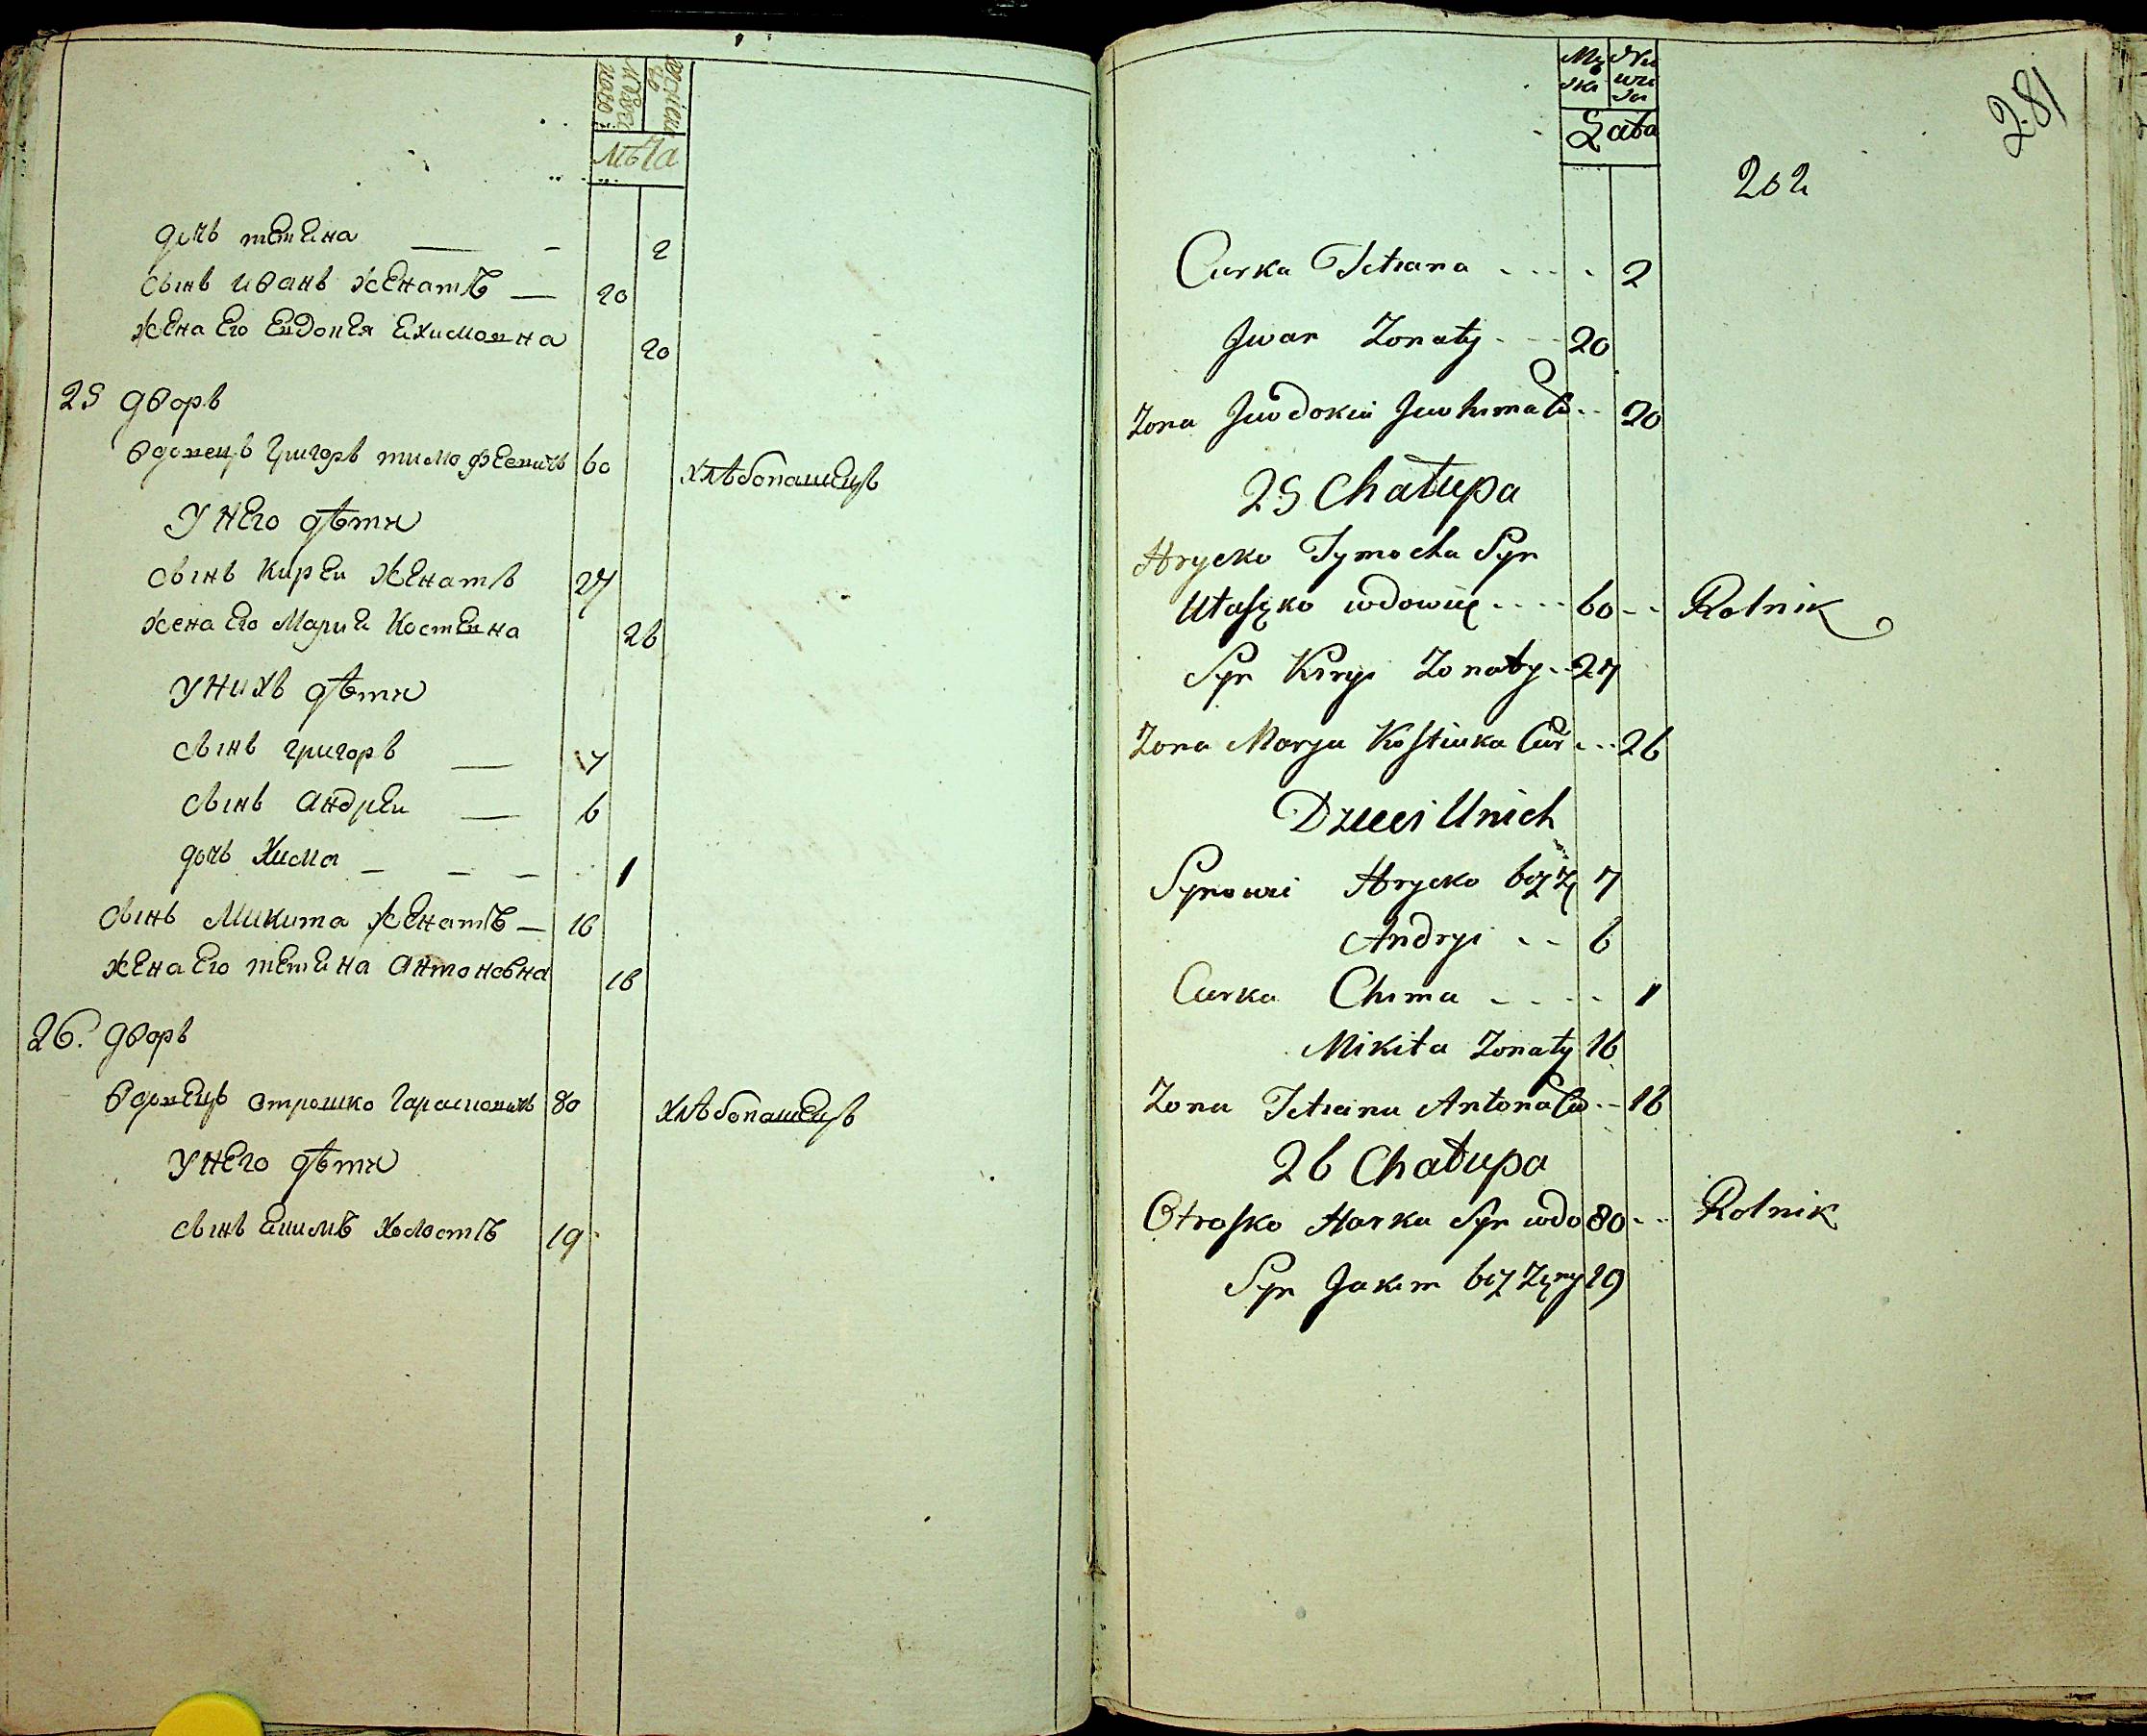 мужеска
женска
Лѣта
дочь тетяна — - 2
сынъ иванъ женатъ — 20
жена его евдокея ехимовна 20
25 дворъ
вдовецъ григорь тимофеевичъ 60 хлѣбопашецъ
у него дѣти
сынъ кирей женатъ 27
жена его Марья Костевна 26
у нихъ дѣти
сынъ григорь — 7
сынъ андрей — 6
дочь Хима - - - 1
сынъ Микита женатъ — 16
жена его тетяна антоновна 16
26. дворъ
вдовецъ отрошко гарасимовичъ 80 хлѣбопашецъ
у него дѣти
сынъ екимъ холостъ 19
281
Męskа Niewia
Lata
202
Curka Tetiana .... 2
Jwan Zonaty .. 20
Zona Jwdokia Juchima C .. 20
25 Chałupa
Hrycko Tymocha Syn
wdowiec .... 60 -- Rolnik
Syn Kiryi Zonaty .. 27
Zona Marya Kostiuka Cur ... 26
Dzieci Unich
Synowie Hrycko bez Z 7
Andryi .. 6
Curka Chima .... 1
Mikita Zonaty 16
Zona Tetiana Antona Cu .. 16
26 Chałupa
Otrosko Harka Syn wdo 80 ... Rolnik
Syn Jakim bez Zeny 19